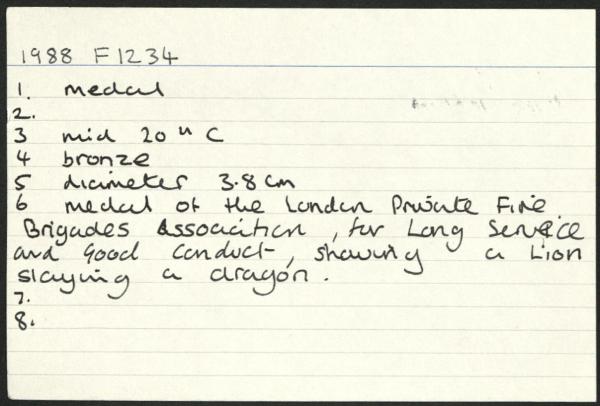 1988 F1234
1. medal
2.
3 mid 20" C
4 bronze
5 diameter 3.8cm
6 medal of the London Private Fire
Brigades Association, for Long Service
and Good Conduct, showing a Lion
slaying a dragon.
7.
8.